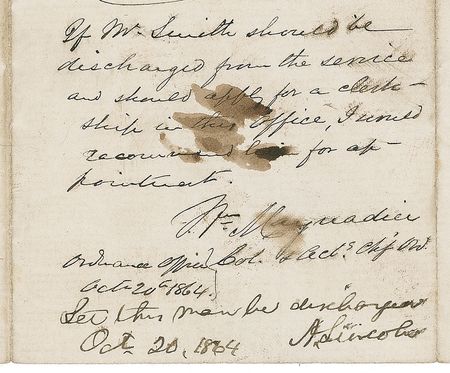 If Mr Smith should be
discharged from the service
and should apply for a clerk-
ship in this Office, I would
recommend him for ap-
pointment.
Wm Maynadier
Col. & Actg Chf Ord.
Ordnance Office
Oct 20th 1864.
Let this man be discharged
Oct. 20, 1864 A. Lincoln